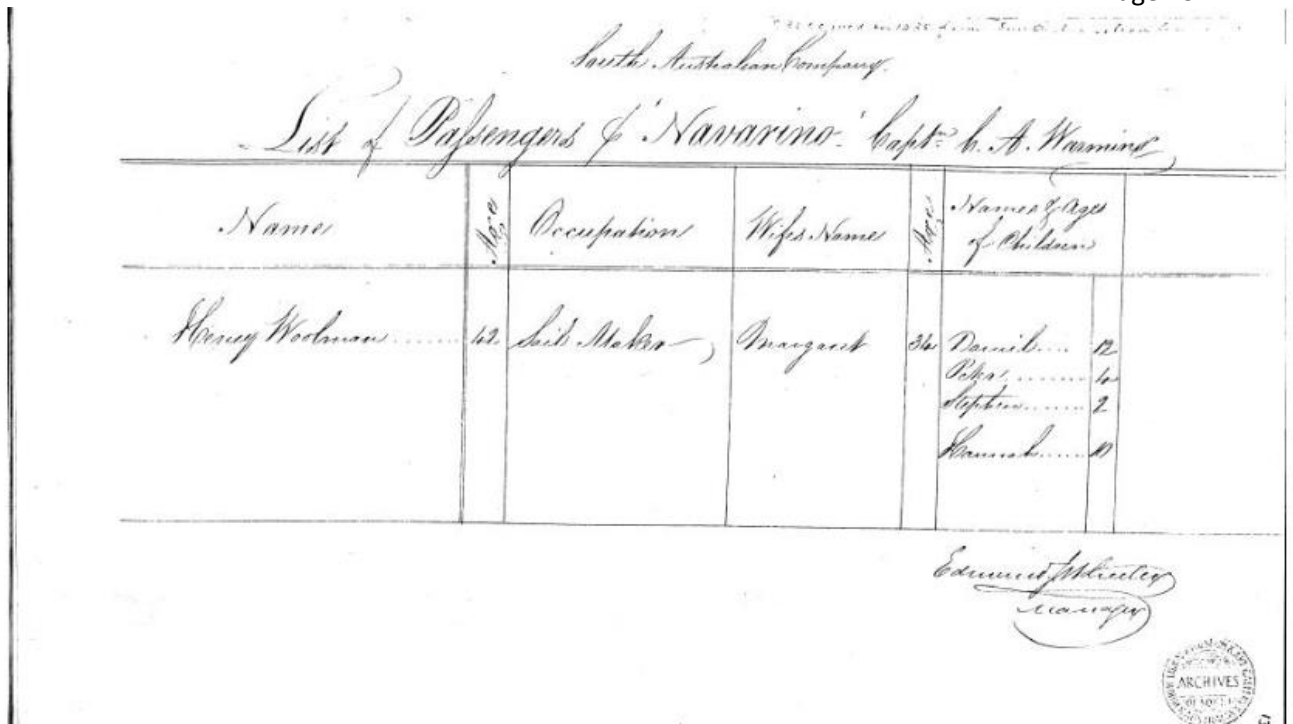 South Australian Company.
List of Passengers p "Navarino" Captn C. A. Warming
Name Age Occupation Wifes Name Age Names & Ages
of Children
Henry Woolman 42 Sail Maker Margaret 34 Daniel 12
Peter 4
Stephen 2
Hannah 10
Edmund
Manager
ARCHIVES